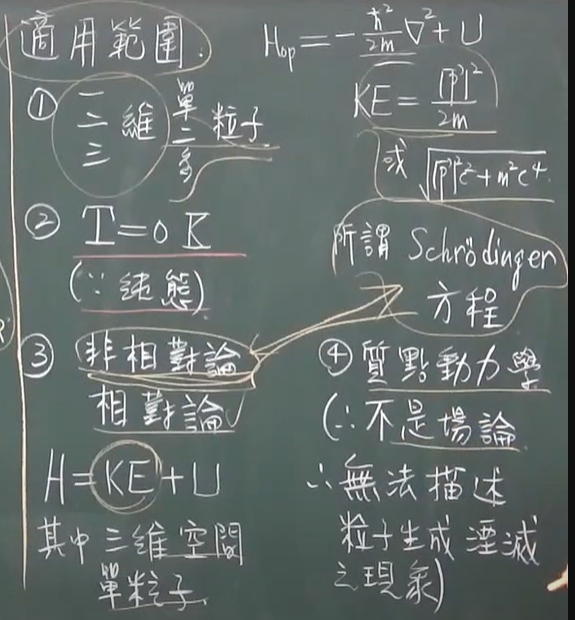 適用範圍.
① 一二三維 單二多粒子
② T=0 K
(∵ 純態)
③ 非相對論
相對論✓
H=KE+U
其中三維空間
單粒子.
H_op = -ħ²/2m ∇² + U
KE = |p⃗|²/2m
或 √(|p⃗|²c²+m²c⁴)
所謂 Schrödinger
方程
④ 質點動力學
(∴不是場論
∴無法描述
粒子生成湮滅
之現象)